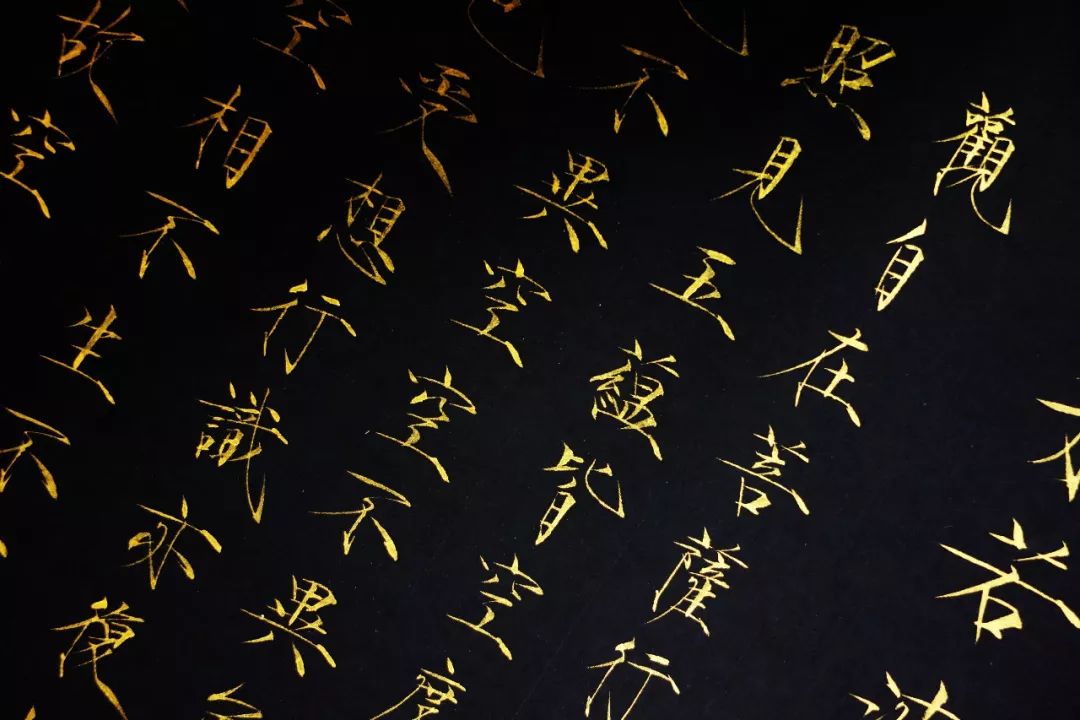 若
觀自在菩薩行
照見五蘊皆空度
不異空空不異
受想行識亦復
空相不生不
故空